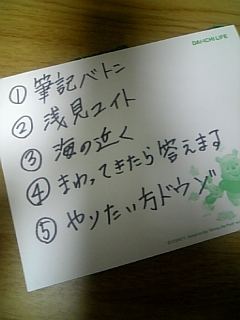 DAI-ICHI LIFE
① 筆記バトン
② 浅見ユイト
③ 海の近く
④ まわってきたら答えます
⑤ やりたい方ドウゾ